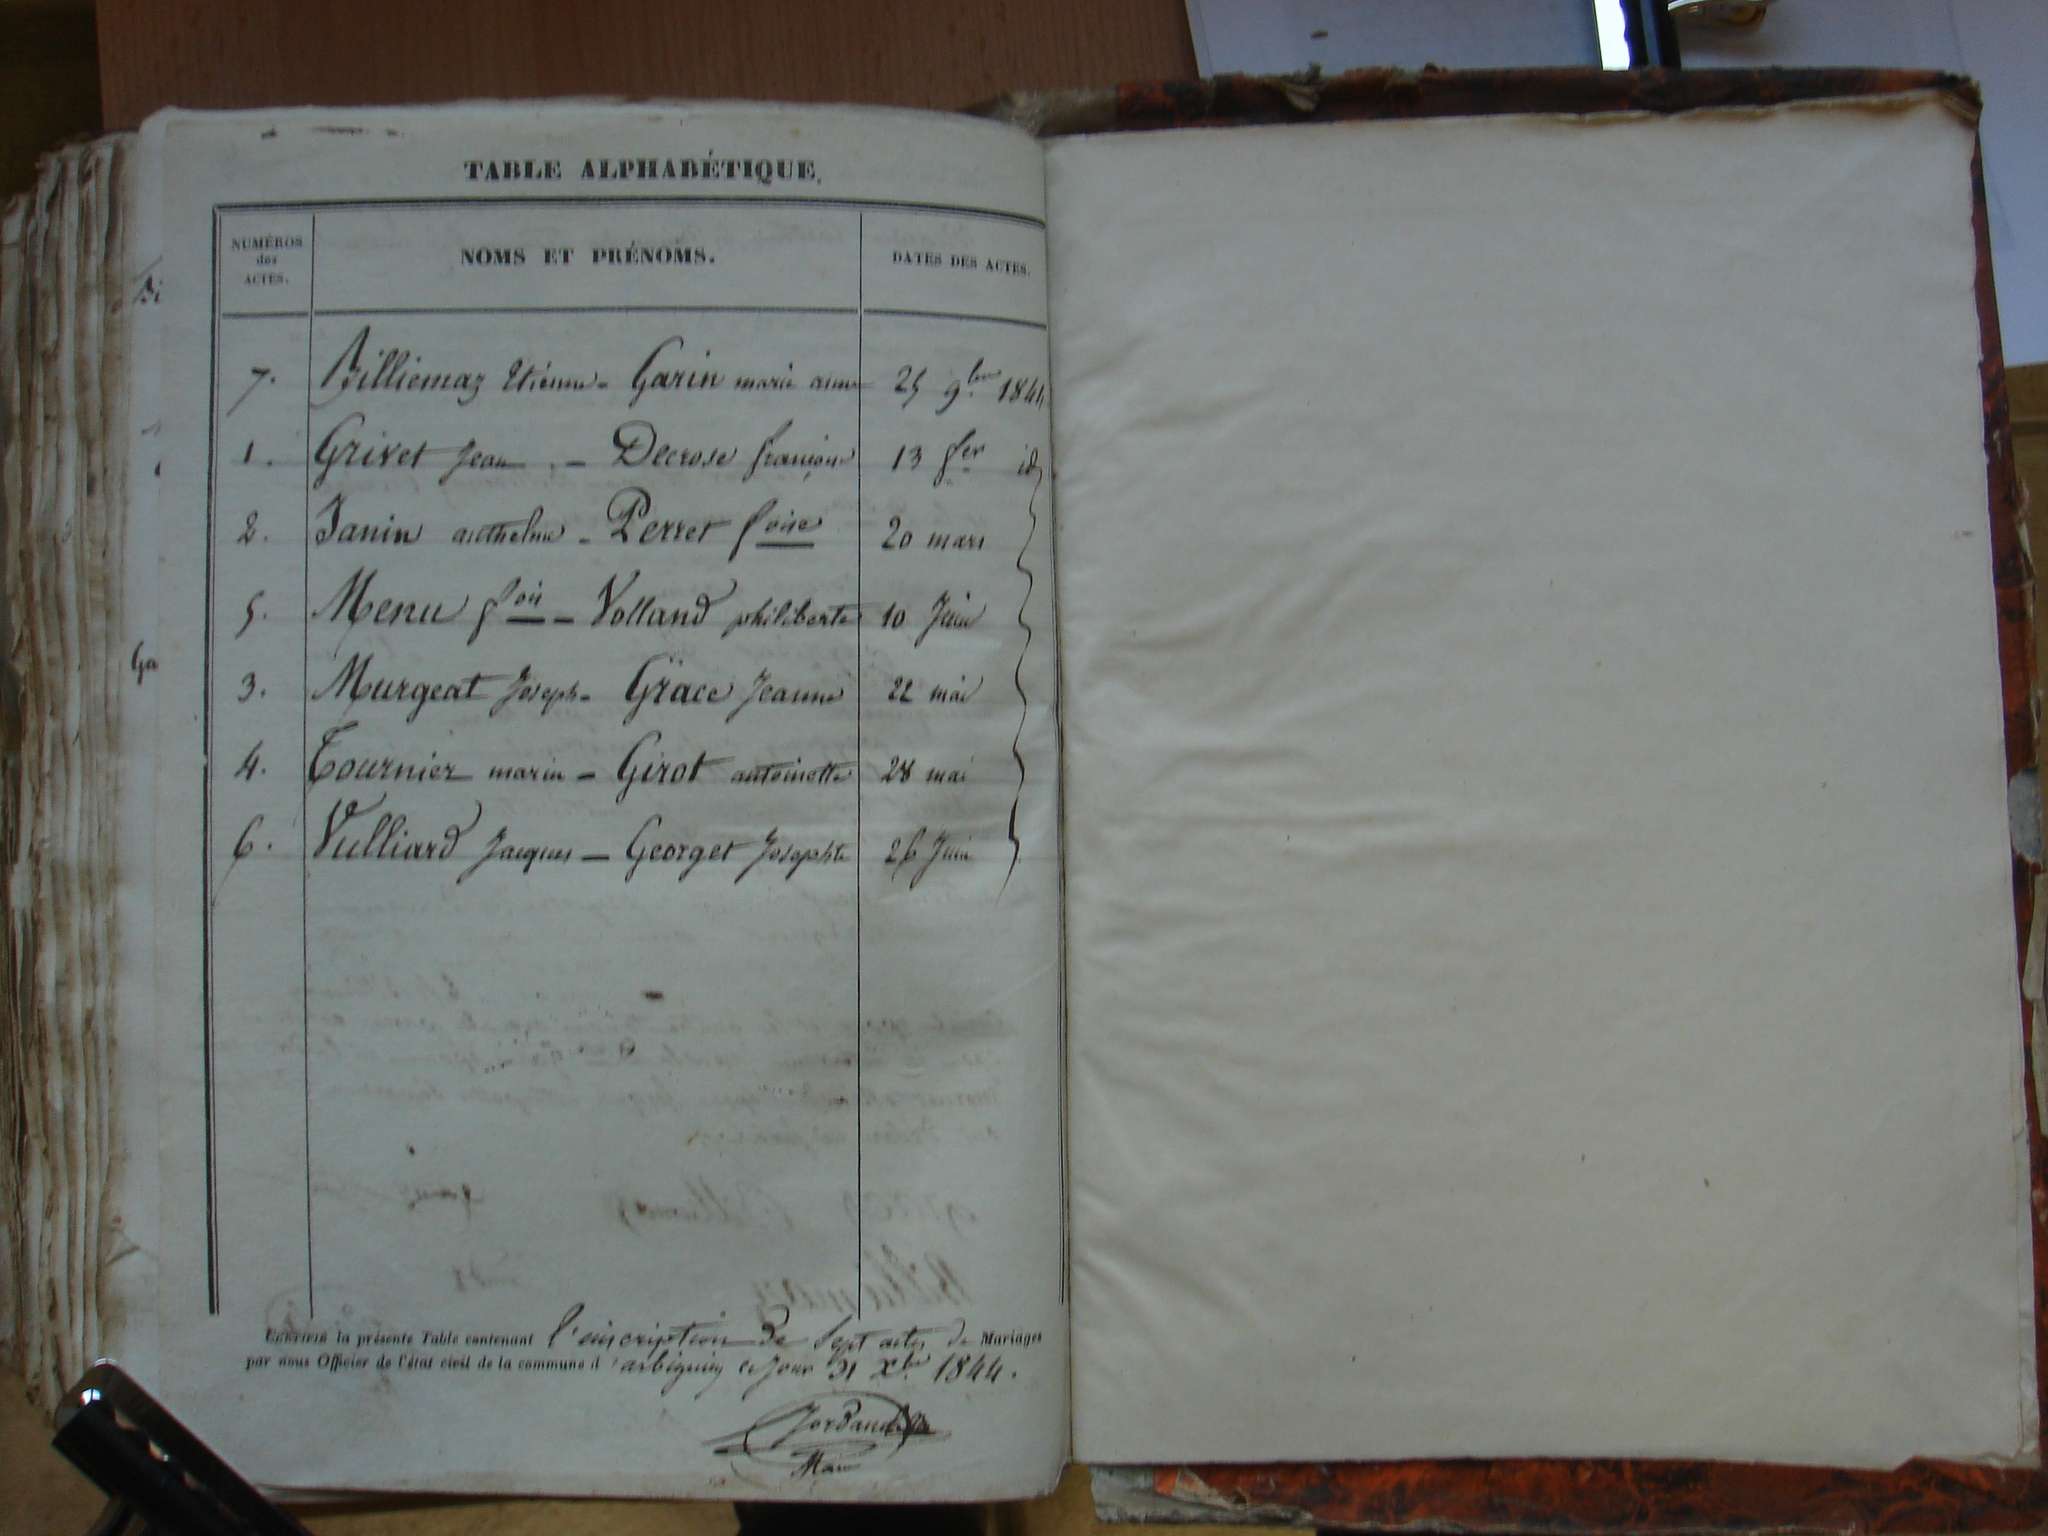 TABLE ALPHABÉTIQUE.
NUMÉROS
des
ACTES.
NOMS ET PRÉNOMS.
DATES DES ACTES.
7. Billiemaz Etienne - Garin marie anne 25 9bre 1844
1. Grivet Jean - Decrose françoise 13 fer id
2. Janin anthelme - Perret foise 20 mars
5. Menu fois - Volland philiberte 10 Juin
3. Murgeat Joseph - Grace Jeanne 22 mai
4. Tournier marin - Girot antoinette 28 mai
6. Vulliard Jacques - Georget Josephte 26 Juin
Bi
Ga
CERTIFIÉ la présente Table contenant l'inscription de Sept actes de Mariages
par nous Officier de l'état civil de la commune d'arbignieu ce jour 31 Xbre 1844.
Maire